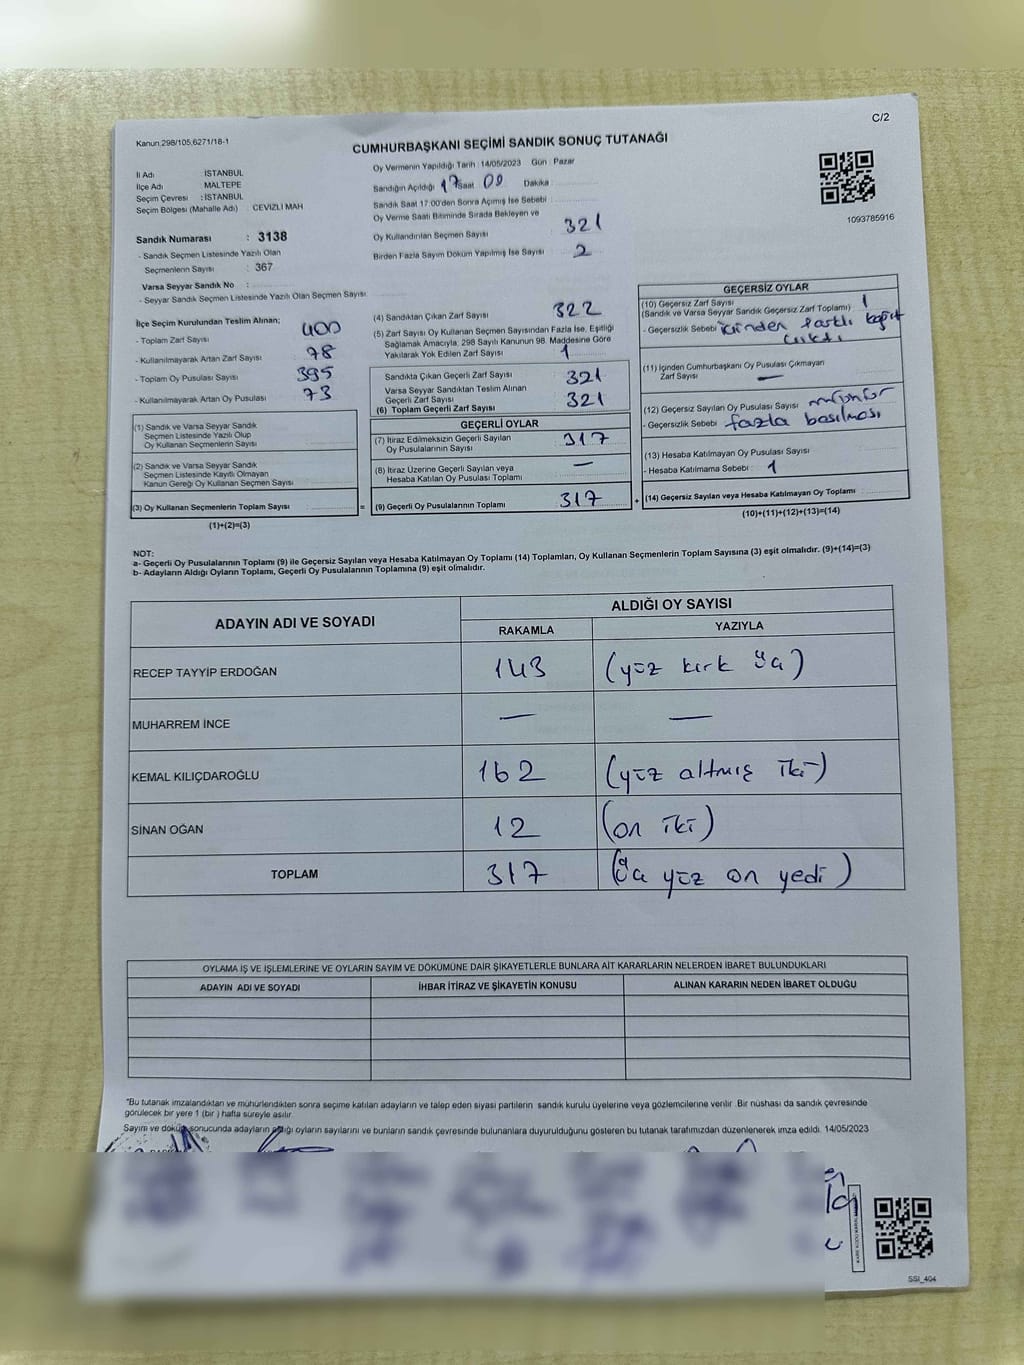 C/2
Kanun.298/105,6271/18-1
CUMHURBAŞKANI SEÇİMİ SANDIK SONUÇ TUTANAĞI
İl Adı : İSTANBUL
İlçe Adı : MALTEPE
Seçim Çevresi : İSTANBUL
Seçim Bölgesi (Mahalle Adı) : CEVİZLİ MAH
Sandık Numarası : 3138
- Sandık Seçmen Listesinde Yazılı Olan
Seçmenlerin Sayısı : 367
Varsa Seyyar Sandık No :
- Seyyar Sandık Seçmen Listesinde Yazılı Olan Seçmen Sayısı
Oy Vermenin Yapıldığı Tarih : 14/05/2023 Gün : Pazar
Sandığın Açıldığı 17 Saat 00 Dakika
Sandık Saat 17:00'den Sonra Açımış İse Sebebi :
Oy Verme Saati Bitiminde Sırada Bekleyen ve
Oy Kullandırılan Seçmen Sayısı 321
Birden Fazla Sayım Döküm Yapılmış İse Sayısı 2
1093785916
İlçe Seçim Kurulundan Teslim Alınan;
- Toplam Zarf Sayısı 400
- Kullanılmayarak Artan Zarf Sayısı 78
- Toplam Oy Pusulası Sayısı 395
- Kullanılmayarak Artan Oy Pusulası 73
(1) Sandık ve Varsa Seyyar Sandık
Seçmen Listesinde Yazılı Olup
Oy Kullanan Seçmenlerin Sayısı
(2) Sandık ve Varsa Seyyar Sandık
Seçmen Listesinde Kayıtlı Olmayan
Kanun Gereği Oy Kullanan Seçmen Sayısı
(3) Oy Kullanan Seçmenlerin Toplam Sayısı =
(1)+(2)=(3)
(4) Sandıktan Çıkan Zarf Sayısı 322
(5) Zarf Sayısı Oy Kullanan Seçmen Sayısından Fazla İse, Eşitliği
Sağlamak Amacıyla, 298 Sayılı Kanunun 98. Maddesine Göre
Yakılarak Yok Edilen Zarf Sayısı 1
Sandıkta Çıkan Geçerli Zarf Sayısı 321
Varsa Seyyar Sandıktan Teslim Alınan
Geçerli Zarf Sayısı 321
(6) Toplam Geçerli Zarf Sayısı
GEÇERLİ OYLAR
(7) İtiraz Edilmeksizin Geçerli Sayılan
Oy Pusulalarının Sayısı 317
(8) İtiraz Üzerine Geçerli Sayılan veya
Hesaba Katılan Oy Pusulası Toplamı —
(9) Geçerli Oy Pusulalarının Toplamı 317 +
GEÇERSİZ OYLAR
(10) Geçersiz Zarf Sayısı 1
(Sandık ve Varsa Seyyar Sandık Geçersiz Zarf Toplamı)
- Geçersizlik Sebebi içinden farklı kağıt
çıktı
(11) İçinden Cumhurbaşkanı Oy Pusulası Çıkmayan
Zarf Sayısı —
(12) Geçersiz Sayılan Oy Pusulası Sayısı
- Geçersizlik Sebebi fazla basılması
(13) Hesaba Katılmayan Oy Pusulası Sayısı
- Hesaba Katılmama Sebebi : 1
(14) Geçersiz Sayılan veya Hesaba Katılmayan Oy Toplamı
(10)+(11)+(12)+(13)=(14)
NOT:
a- Geçerli Oy Pusulalarının Toplamı (9) ile Geçersiz Sayılan veya Hesaba Katılmayan Oy Toplamı (14) Toplamları, Oy Kullanan Seçmenlerin Toplam Sayısına (3) eşit olmalıdır. (9)+(14)=(3)
b- Adayların Aldığı Oyların Toplamı, Geçerli Oy Pusulalarının Toplamına (9) eşit olmalıdır.
ADAYIN ADI VE SOYADI ALDIĞI OY SAYISI
RAKAMLA YAZIYLA
RECEP TAYYİP ERDOĞAN 143 (yüz kırk üç)
MUHARREM İNCE — —
KEMAL KILIÇDAROĞLU 162 (yüz altmış iki)
SİNAN OĞAN 12 (on iki)
TOPLAM 317 (üç yüz on yedi)
OYLAMA İŞ VE İŞLEMLERİNE VE OYLARIN SAYIM VE DÖKÜMÜNE DAİR ŞİKAYETLERLE BUNLARA AİT KARARLARIN NELERDEN İBARET BULUNDUKLARI
ADAYIN ADI VE SOYADI İHBAR İTİRAZ VE ŞİKAYETİN KONUSU ALINAN KARARIN NEDEN İBARET OLDUĞU
*Bu tutanak imzalandıktan ve mühürlendikten sonra seçime katılan adayların ve talep eden siyasi partilerin sandık kurulu üyelerine veya gözlemcilerine verilir .Bir nüshası da sandık çevresinde
görülecek bir yere 1 (bir ) hafta süreyle asılır.
Sayım ve döküm sonucunda adayların aldığı oyların sayılarını ve bunların sandık çevresinde bulunanlara duyurulduğunu gösteren bu tutanak tarafımızdan düzenlenerek imza edildi. 14/05/2023
SSI_404